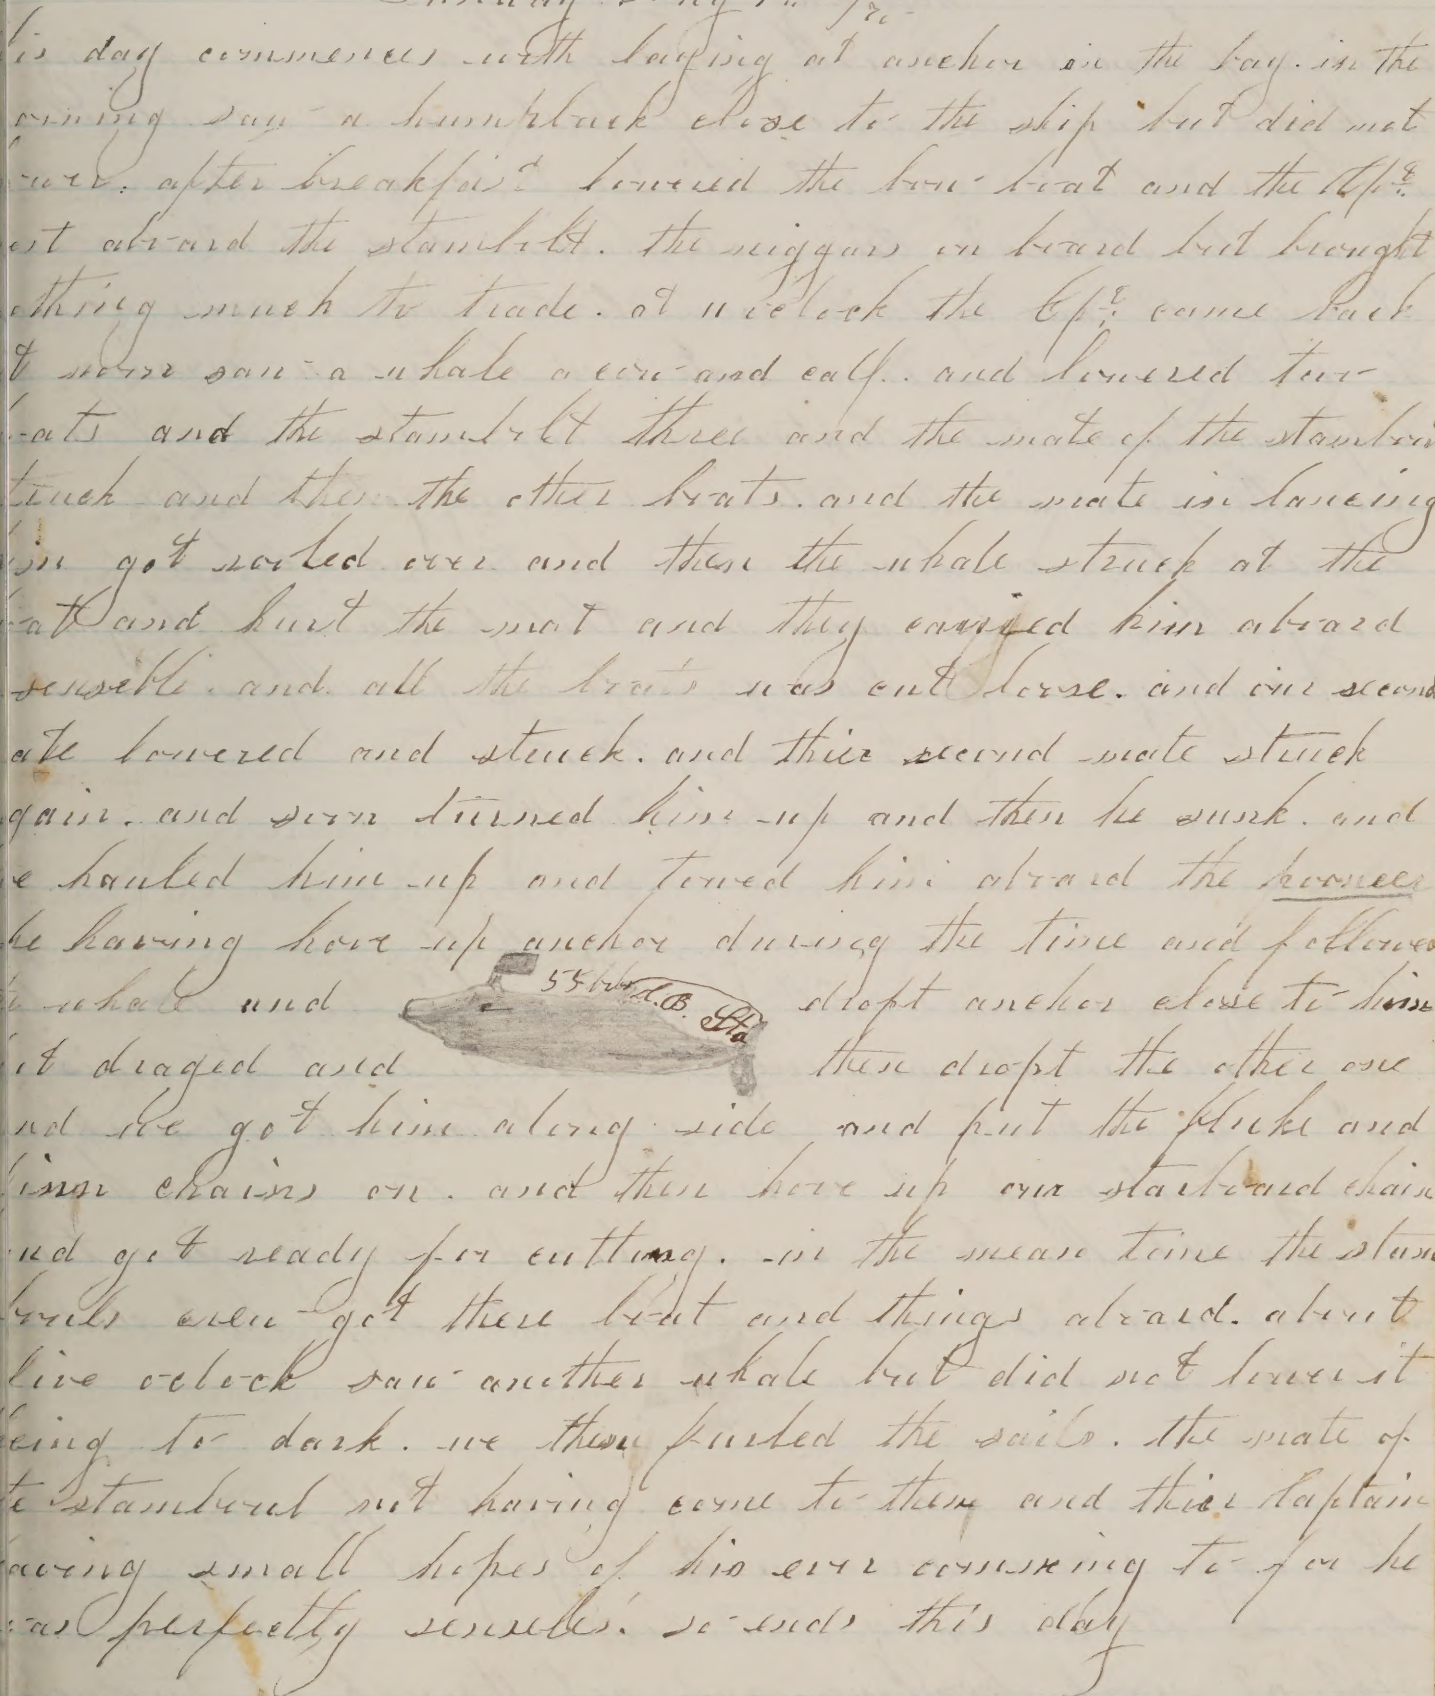 is day commences with laying at anchor in the bay. in the
orning saw a humpback close to the ship but did not
ower. after breakfast lowered the bow boat and the Cpt
ent aboard the stambolt. the niggars on board but brought
othing much to trade. at 11 oclock the Cpt came back
t noon saw a whale a cow and calf.. and lowered two
oats and the stambolt three and the mate of the stambou
truck and then the other boats. and the mate in lancing
him got rooled over and then the whale struck at the
oat and hurt the mat and they carried him aboard
senseble. and all the boats was cut loose. and our second
ate lowered and stuck. and thier second mate stuck
gain. and soon turned him up and then he sunk. and
e hauled him up and towed him aboard the
he having hove up anchor during the time and followed
whale and 55 bbls dropt anchor close to him
it draged and L.B. Sta then dropt the other one
nd we got him along side and put the fluke and
finn chains on. and then hove up our starboard chain
nd got ready for cutting. in the mean time the stam
bouls crew got there boat and things aboard. about
five oclock saw another whale but did not lower it
being to dark. we then furled the sails. the mate of
te stamboul not having come to then and thier Captain
aving small hopes of his ever comeing to for he
was perfectly senseles. so ends this day